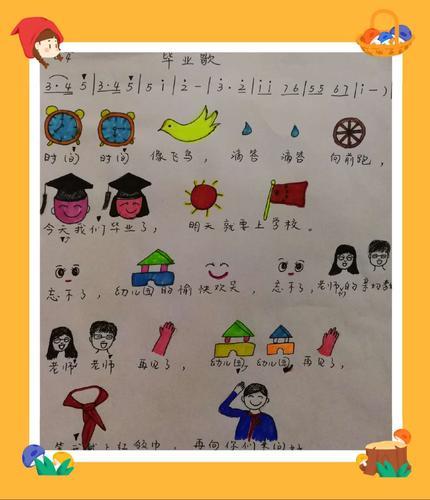 4 毕业歌
3·4 5 | 3·4 5 | 5 i | 2̇ - | 3̇· 2̇ | i i 7 6 | 5 5 6 7 | i - ) |
时间 时间 像飞鸟, 滴答 滴答 向前跑,
今天我们毕业了, 明天就要上学校。
忘不了, 幼儿园的愉快欢笑, 忘不了, 老师的亲切教
老师 老师 再见了, 幼儿园 幼儿园 再见了,
上红领巾, 再向你们来问好